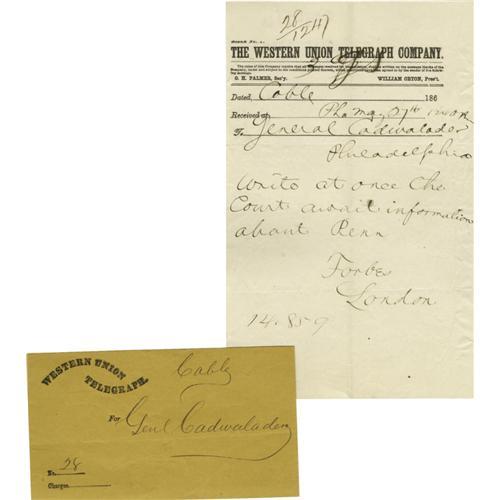 28
1247
THE WESTERN UNION TELEGRAPH COMPANY.
O. H. PALMER, Sec'y. WILLIAM ORTON, Pres't.
Dated, Cable 186
Received at Pha May 27th
To General Cadwalader
Philadelphia
Write at once the
Court await information
about Penn
Forbes
London
14.859
WESTERN UNION
TELEGRAPH.
Cable
For Genl Cadwalader
No. 28
Charges